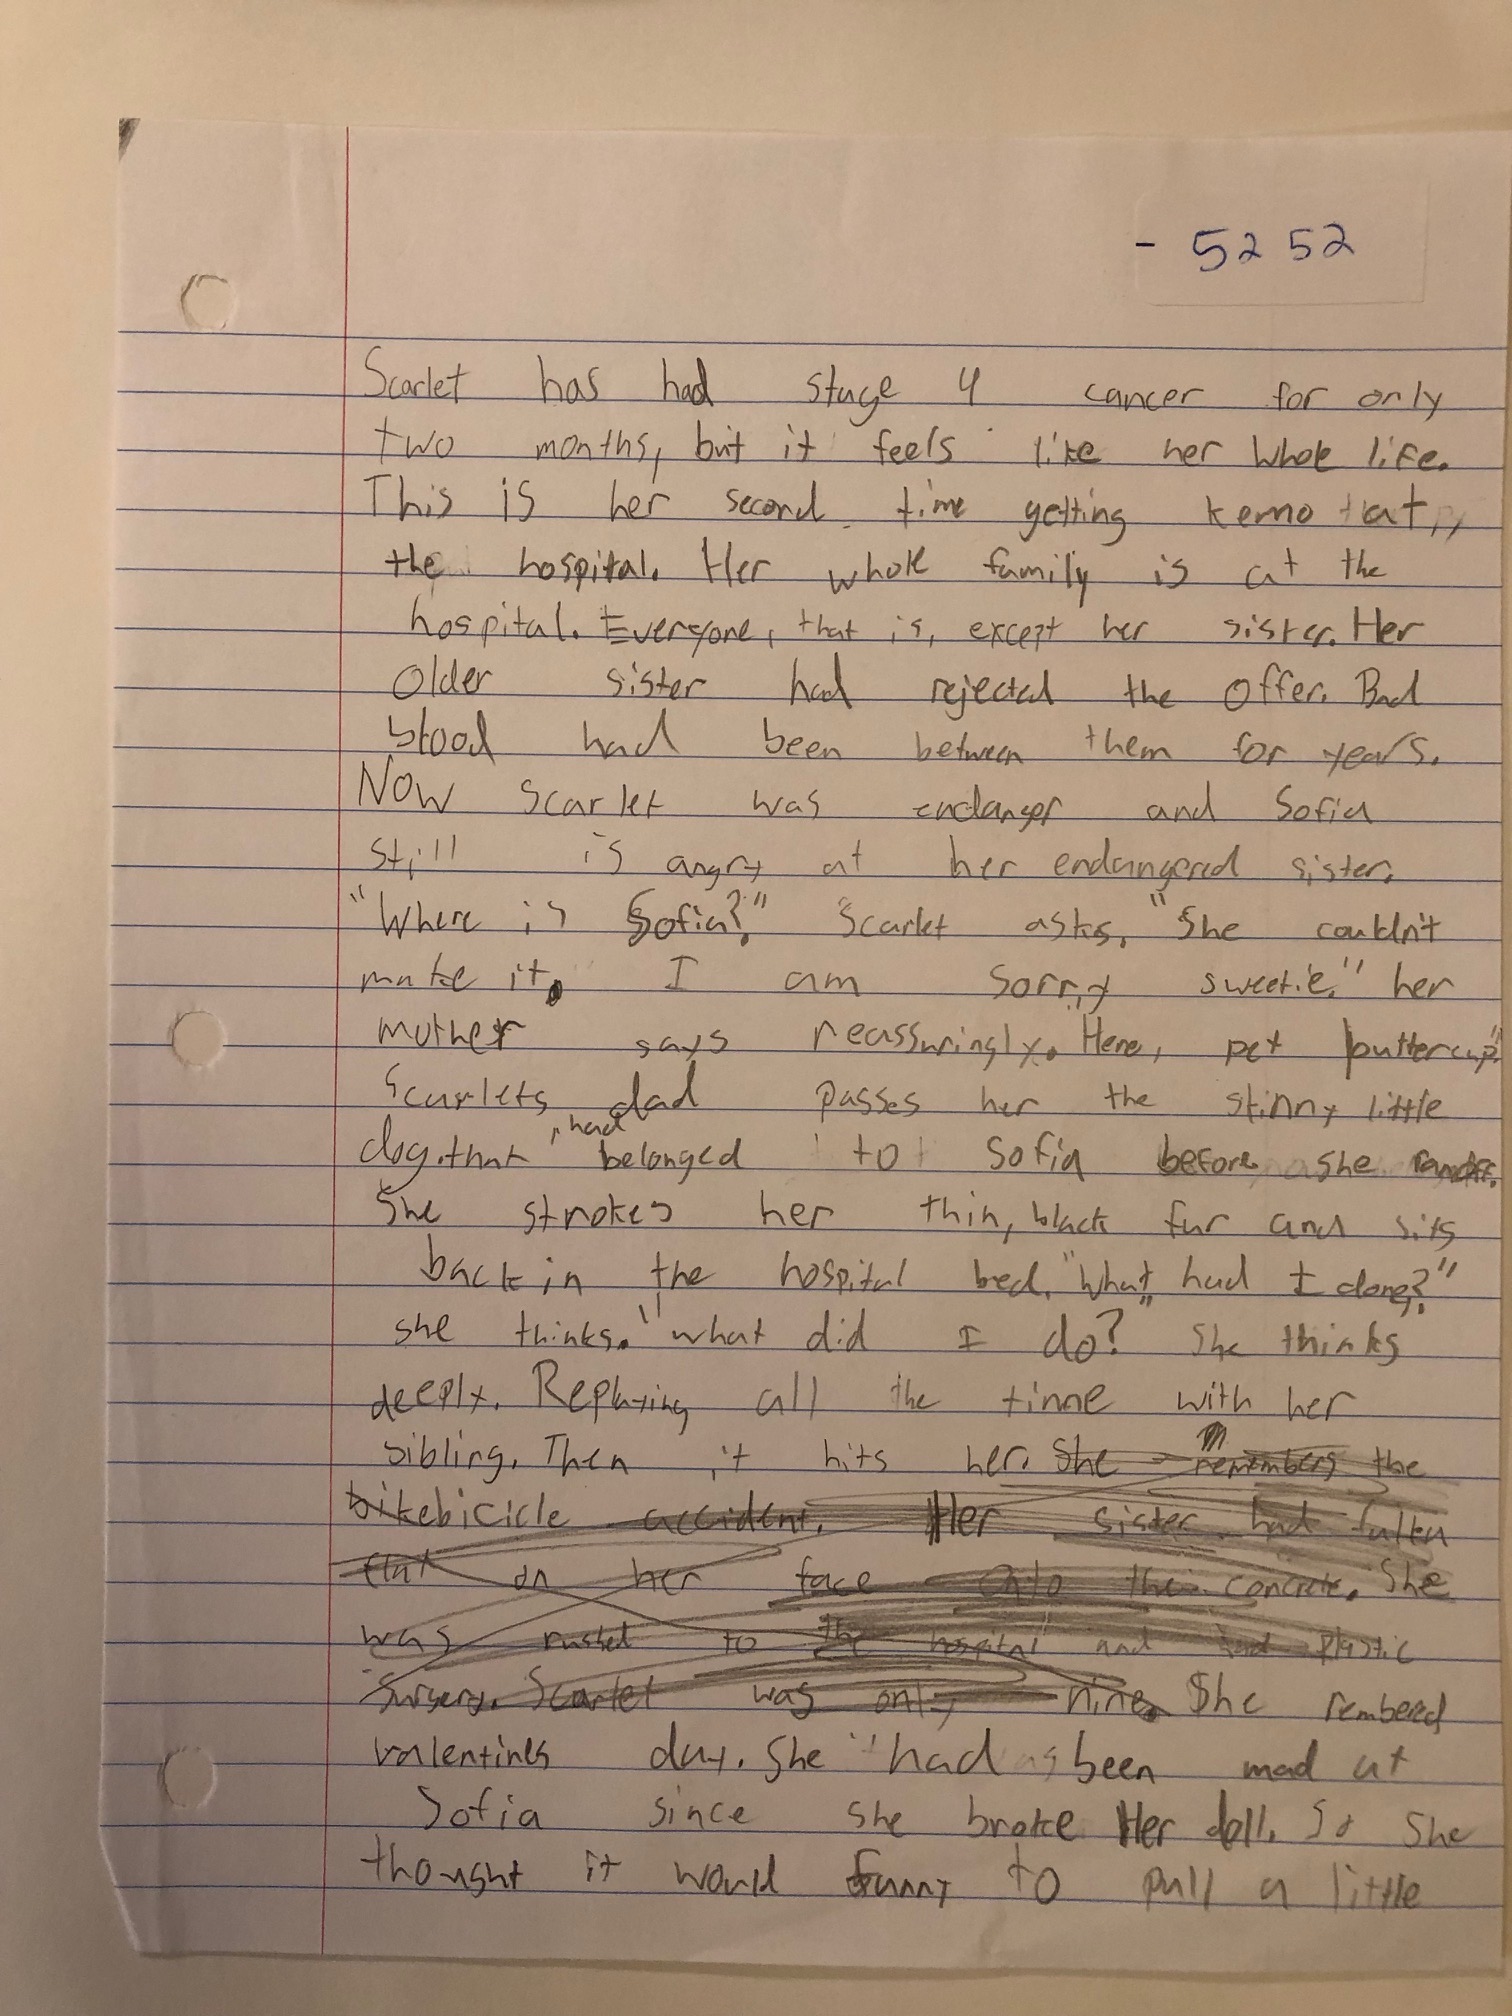 - 5252
Scarlet has had stage 4 cancer for only
two months, but it feels like her whole life.
This is her second time getting kemo at
the hospital. Her whole family is at the
hospital. Everyone, that is, except her sister. Her
older sister had rejected the offer. Bad
blood had been between them for years.
Now Scarlet was endanger and Sofia
still is angry at her endangered sister.
"Where is Sofia?" Scarlet asks. "She couldn't
make it. I am sorry sweetie." her
mother says reassuringly. Here, pet buttercup"
Scarlets dad passes her the skinny little
dog that had belonged to Sofia before she
She strokes her thin, black fur and sits
back in the hospital bed. "What had I done?"
she thinks. "what did I do?" She thinks
deeply. Replaying all the time with her
sibling. Then it hits her. She remembers the
bikebicicle accident. Her sister had fallen
flat on her face onto the concrete. She
was rushed to the hospital and had plastic
surgery. Scarlet was only nine. She rembered
valentines day. She had been mad at
Sofia since she broke Her doll. So she
thought it would funny to pull a little